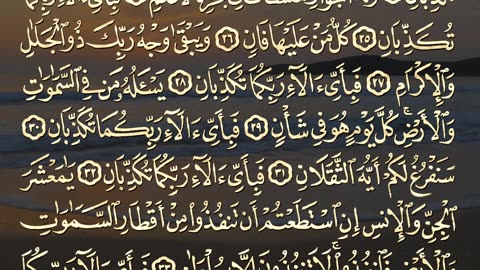 تُكَذِّبَانِ ٢٥ كُلُّ مَنْ عَلَيْهَا فَانٍ ٢٦ وَيَبْقَىٰ وَجْهُ رَبِّكَ ذُو ٱلْجَلَـٰلِ
وَٱلْإِكْرَامِ ٢٧ فَبِأَىِّ ءَالَآءِ رَبِّكُمَا تُكَذِّبَانِ ٢٨ يَسْـَٔلُهُۥ مَن فِى ٱلسَّمَـٰوَٰتِ
وَٱلْأَرْضِ ۚ كُلَّ يَوْمٍ هُوَ فِى شَأْنٍ ٢٩ فَبِأَىِّ ءَالَآءِ رَبِّكُمَا تُكَذِّبَانِ ٣٠
سَنَفْرُغُ لَكُمْ أَيُّهَ ٱلثَّقَلَانِ ٣١ فَبِأَىِّ ءَالَآءِ رَبِّكُمَا تُكَذِّبَانِ ٣٢ يَـٰمَعْشَرَ
ٱلْجِنِّ وَٱلْإِنسِ إِنِ ٱسْتَطَعْتُمْ أَن تَنفُذُوا۟ مِنْ أَقْطَارِ ٱلسَّمَـٰوَٰتِ